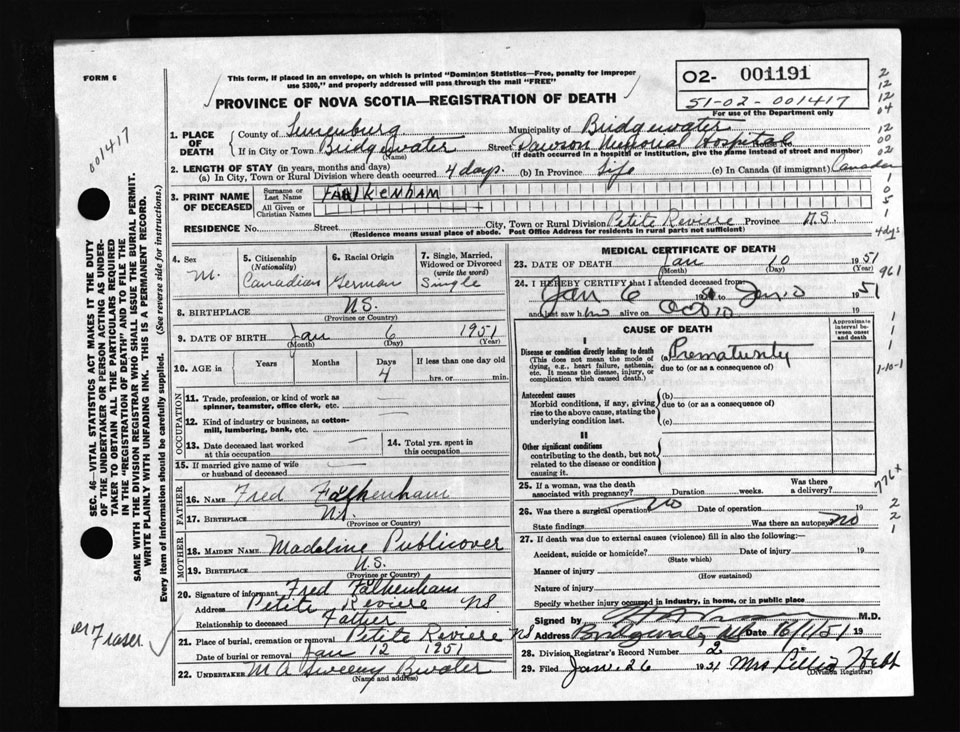 FORM 6
This form, if placed in an envelope, on which is printed "Dominion Statistics—Free, penalty for improper
use $300," and properly addressed will pass through the mail "FREE"
PROVINCE OF NOVA SCOTIA—REGISTRATION OF DEATH
02- 001191
51-02-001417
For use of the Department only
001417
1. PLACE OF DEATH County of Lunenburg Municipality of Bridgewater
If in City or Town Bridgewater (Name) Street Dawson Memorial Hospital House No.
(If death occurred in a hospital or institution, give the name instead of street and number)
2. LENGTH OF STAY (in years, months and days)
(a) In City, Town or Rural Division where death occurred 4 days. (b) In Province Life (c) In Canada (if immigrant) Canadian
3. PRINT NAME OF DECEASED Surname or Last Name FALKENHAM
All Given or Christian Names
RESIDENCE No. Street City, Town or Rural Division Petite Reviere Province N.S.
(Residence means usual place of abode. Post Office Address for residents in rural parts not sufficient)
4. Sex M.
5. Citizenship (Nationality) Canadian
6. Racial Origin German
7. Single, Married, Widowed or Divorced (write the word) Single
8. BIRTHPLACE N.S.
(Province or Country)
9. DATE OF BIRTH Jan 6 1951
(Month) (Day) (Year)
10. AGE in Years Months Days 4 If less than one day old hrs. or min.
OCCUPATION
11. Trade, profession, or kind of work as
spinner, teamster, office clerk, etc. —
12. Kind of industry or business, as cotton-
mill, lumbering, bank, etc. —
13. Date deceased last worked
at this occupation —
14. Total yrs. spent in
this occupation
15. If married give name of wife
or husband of deceased —
FATHER
16. NAME Fred Falkenham
17. BIRTHPLACE N.S.
(Province or Country)
MOTHER
18. MAIDEN NAME Madeline Publicover
19. BIRTHPLACE N.S.
(Province or Country)
20. Signature of informant Fred Falkenham
Address Petite Reviere NS.
Relationship to deceased Father
21. Place of burial, cremation or removal Petite Reviere NS
Date of burial or removal Jan 12 1951
22. UNDERTAKER M A Sweeny Bwater
(Name and address)
MEDICAL CERTIFICATE OF DEATH
23. DATE OF DEATH Jan 10 1951
(Month) (Day) (Year)
24. I HEREBY CERTIFY that I attended deceased from
Jan 6 to Jan 10 1951
and last saw him alive on 10 19
CAUSE OF DEATH
Approximate interval between onset and death
I
Disease or condition directly leading to death
(This does not mean the mode of
dying, e.g., heart failure, asthenia,
etc. It means the disease, injury, or
complication which caused death.)
(a) Prematurity
due to (or as a consequence of)
Antecedent causes
Morbid conditions, if any, giving
rise to the above cause, stating the
underlying condition last.
(b)
due to (or as a consequence of)
(c)
II
Other significant conditions
contributing to the death, but not
related to the disease or condition
causing it.
25. If a woman, was the death
associated with pregnancy? Duration weeks. Was there a delivery?
26. Was there a surgical operation No Date of operation 19
State findings Was there an autopsy No
27. If death was due to external causes (violence) fill in also the following:—
Accident, suicide or homicide? Date of injury 19
(State which)
Manner of injury
(How sustained)
Nature of injury
Specify whether injury occurred in industry, in home, or in public place
Signed by M.D.
Address Bridgewater NS Date 16/1/51 19
28. Division Registrar's Record Number 2
29. Filed Jan 26 1951 Mrs Lillia Hebb
(Division Registrar)
SEC. 46—VITAL STATISTICS ACT MAKES IT THE DUTY
OF THE UNDERTAKER OR PERSON ACTING AS UNDER-
TAKER TO OBTAIN ALL THE PARTICULARS REQUIRED
IN THE "REGISTRATION OF DEATH" AND TO FILE THE
SAME WITH THE DIVISION REGISTRAR WHO SHALL ISSUE THE BURIAL PERMIT.
WRITE PLAINLY WITH UNFADING INK. THIS IS A PERMANENT RECORD.
Every item of information should be carefully supplied. (See reverse side for instructions.)
Fraser
2
12
12
04
12
00
02
1
0
5
1
4dys
961
1
1
1
1-10-1
776x
2
2
1